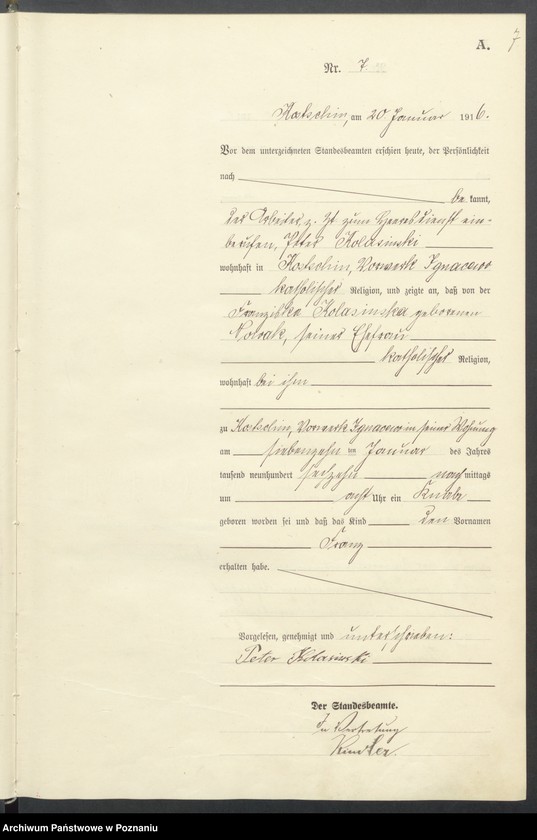 7
A.
Nr. 7.
Kotschin, am 20 Januar 1916.
Vor dem unterzeichneten Standesbeamten erschien heute, der Persönlichkeit
nach
be kannt,
der Arbeiter, z. Zt. zum Heeresdienst ein-
berufen, Peter Kolasinski
wohnhaft in Kotschin, Vorwerk Ignacewo
katholischer Religion, und zeigte an, daß von der
Franziska Kolasinska geborenen
Nowak, seiner Ehefrau
katholischer Religion,
wohnhaft bei ihm
zu Kotschin, Vorwerk Ignacewo in seiner Wohnung
am siebenzehn ten Januar des Jahres
tausend neunhundert sechzehn nachmittags
um acht Uhr ein Knabe
geboren worden sei und daß das Kind den Vornamen
Franz
erhalten habe.
Vorgelesen, genehmigt und unterschrieben:
Peter Kolasinski
Der Standesbeamte.
In Vertretung
Archiwum Państwowe w Poznaniu